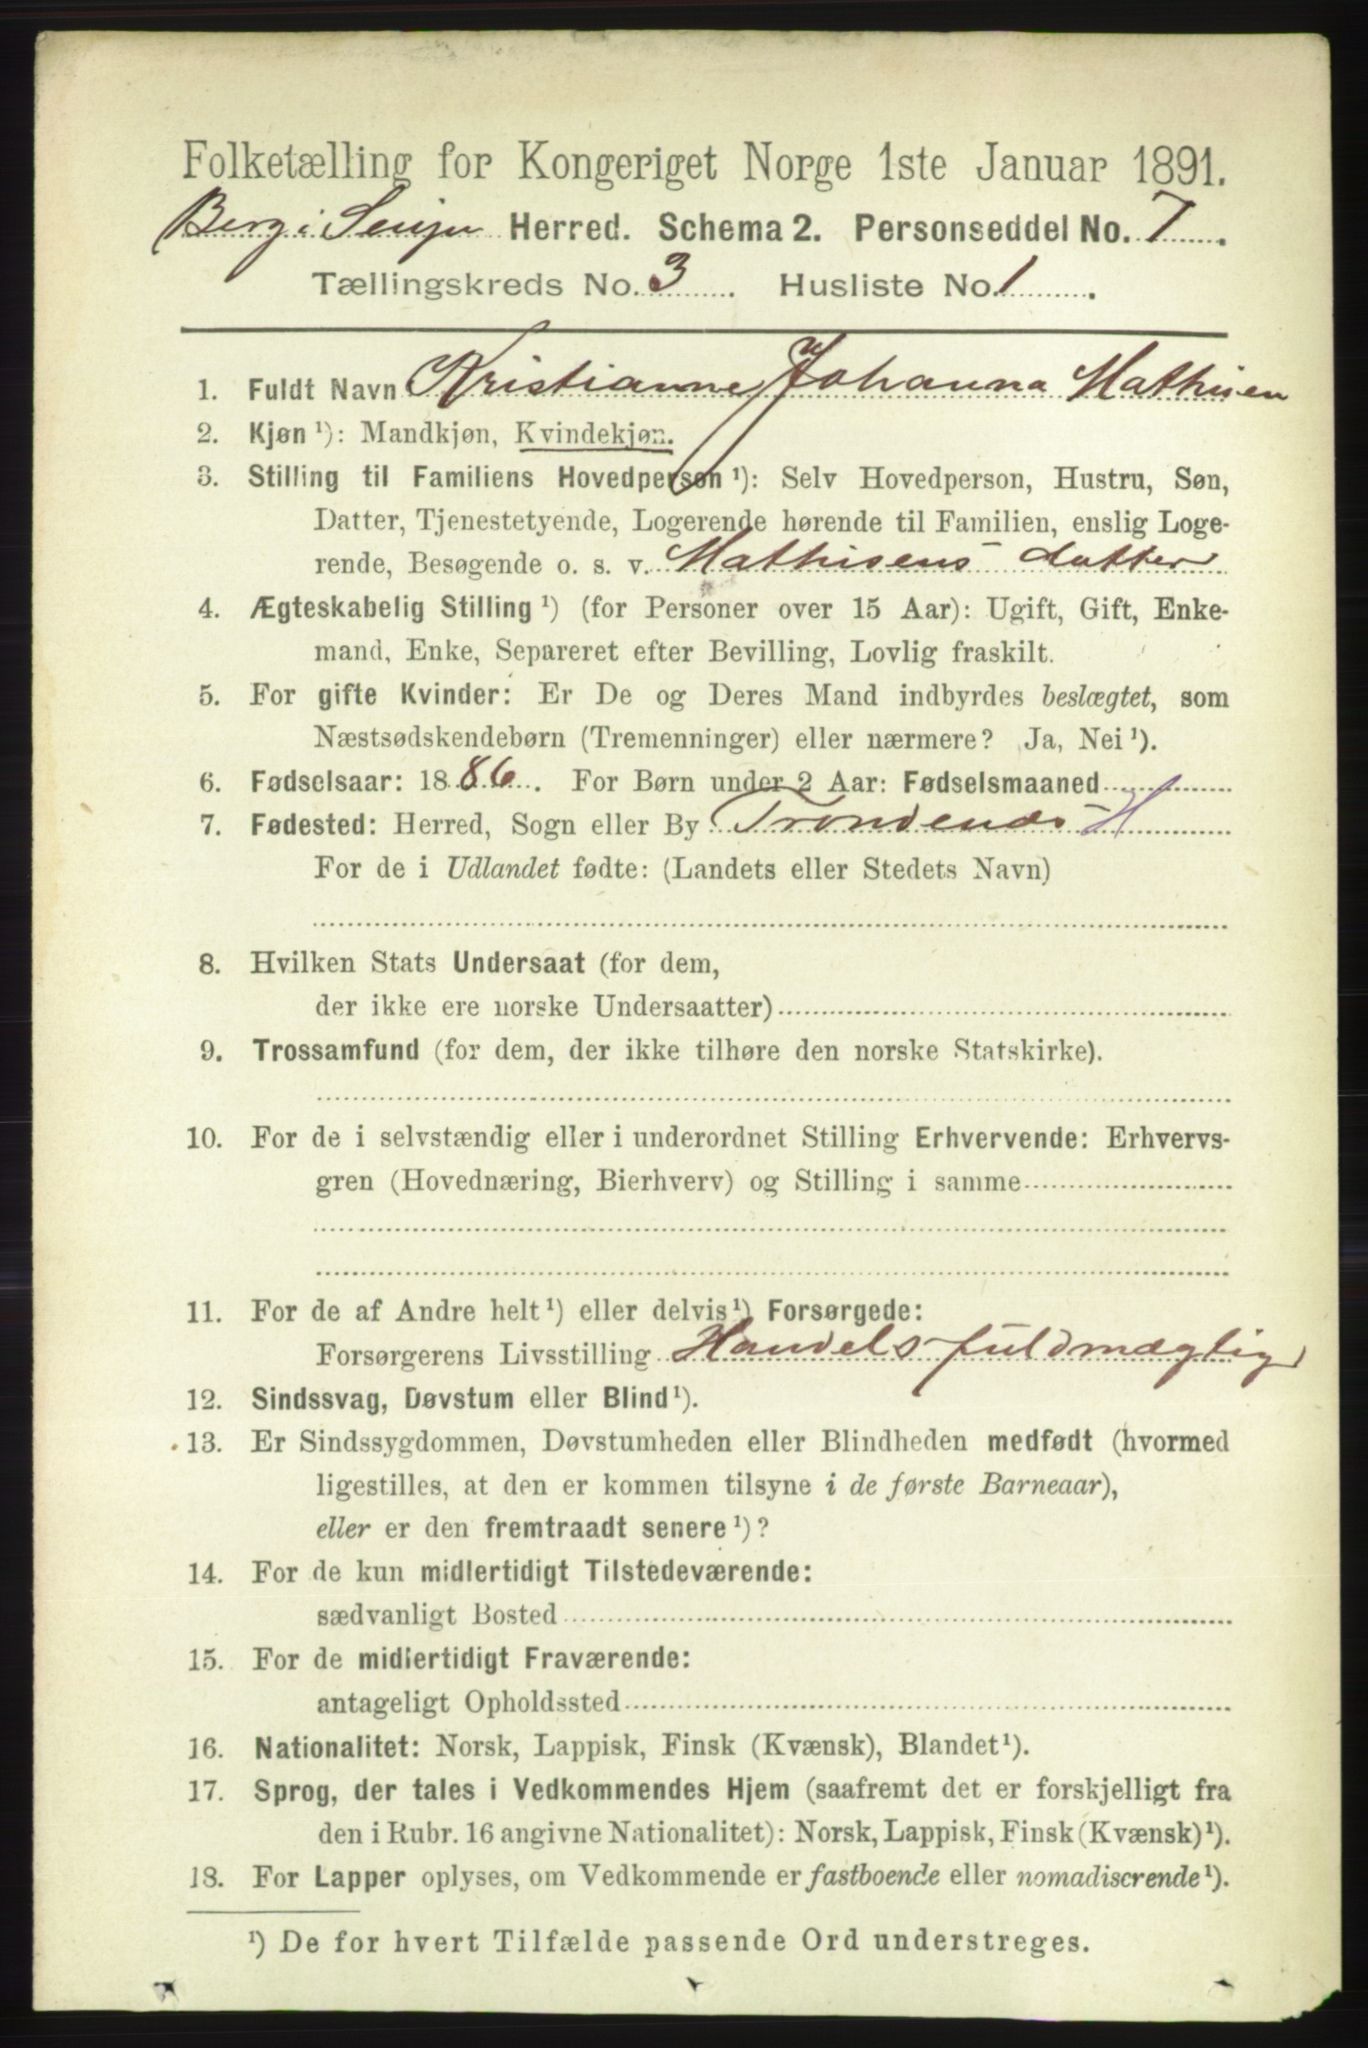 Folketælling for Kongeriget Norge 1ste Januar 1891.
Berg i Senjen Herred. Schema 2. Personseddel No. 7.
Tællingskreds No. 3. Husliste No. 1.
1. Fuldt Navn Kristianne Johanna Mathisen
2. Kjøn ¹): Mandkjøn, Kvindekjøn.
3. Stilling til Familiens Hovedperson ¹): Selv Hovedperson, Hustru, Søn,
Datter, Tjenestetyende, Logerende hørende til Familien, enslig Loge-
rende, Besøgende o. s. v. Mathisens datter
4. Ægteskabelig Stilling ¹) (for Personer over 15 Aar): Ugift, Gift, Enke-
mand, Enke, Separeret efter Bevilling, Lovlig fraskilt.
5. For gifte Kvinder: Er De og Deres Mand indbyrdes beslægtet, som
Næstsødskendebørn (Tremenninger) eller nærmere? Ja, Nei ¹).
6. Fødselsaar: 1886. For Børn under 2 Aar: Fødselsmaaned
7. Fødested: Herred, Sogn eller By Trondenæs H
For de i Udlandet fødte: (Landets eller Stedets Navn)
8. Hvilken Stats Undersaat (for dem,
der ikke ere norske Undersaatter)
9. Trossamfund (for dem, der ikke tilhøre den norske Statskirke).
10. For de i selvstændig eller i underordnet Stilling Erhvervende: Erhvervs-
gren (Hovednæring, Bierhverv) og Stilling i samme
11. For de af Andre helt ¹) eller delvis ¹) Forsørgede:
Forsørgerens Livsstilling Handelsfuldmægtig
12. Sindssvag, Døvstum eller Blind ¹).
13. Er Sindssygdommen, Døvstumheden eller Blindheden medfødt (hvormed
ligestilles, at den er kommen tilsyne i de første Barneaar),
eller er den fremtraadt senere ¹)?
14. For de kun midlertidigt Tilstedeværende:
sædvanligt Bosted
15. For de midlertidigt Fraværende:
antageligt Opholdssted
16. Nationalitet: Norsk, Lappisk, Finsk (Kvænsk), Blandet ¹).
17. Sprog, der tales i Vedkommendes Hjem (saafremt det er forskjelligt fra
den i Rubr. 16 angivne Nationalitet): Norsk, Lappisk, Finsk (Kvænsk) ¹).
18. For Lapper oplyses, om Vedkommende er fastboende eller nomadiserende ¹).
¹) De for hvert Tilfælde passende Ord understreges.